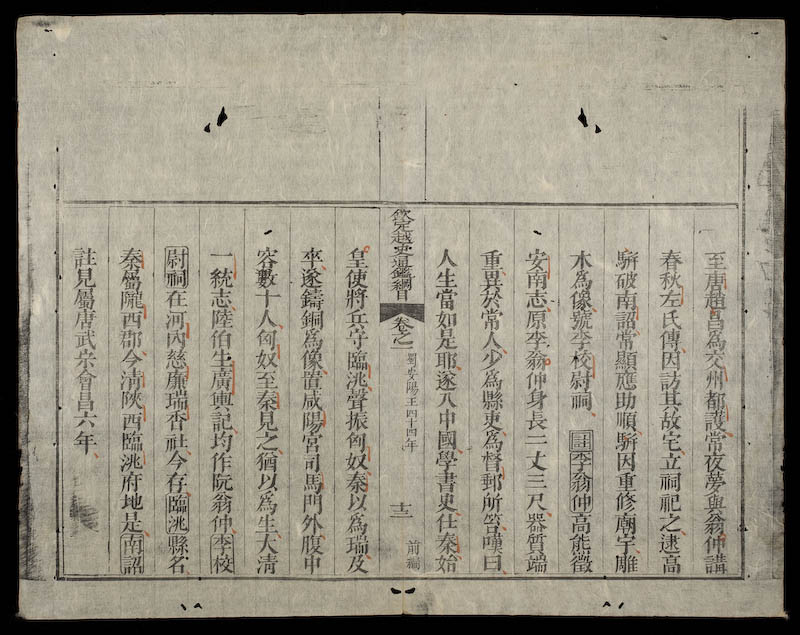 至唐趙昌爲交州都護常夜夢與翁仲講
春秋左氏傳因訪其故宅立祠祀之逮高
駢破南詔常顯應助順駢因重修廟宇雕
木爲像號李校尉祠 註李翁仲高熊徵
安南志原李翁仲身長二丈三尺器質端
重異於常人少爲縣吏爲督郵所笞嘆曰
人生當如是耶遂入中國學書史仕秦始
欽定越史通鑑綱目 卷之一 蜀安陽王四十四年 十二 前編
皇使將兵守臨洮聲振匈奴秦以爲瑞及
卒遂鑄銅爲像置咸陽宮司馬門外腹中
容數十人匈奴至秦見之猶以爲生大清
一統志陸伯生廣輿記均作阮翁仲李校
尉祠在河內慈廉瑞香社今存臨洮縣名
秦屬隴西郡今清陝西臨洮府地是南詔
註見屬唐武宗會昌六年